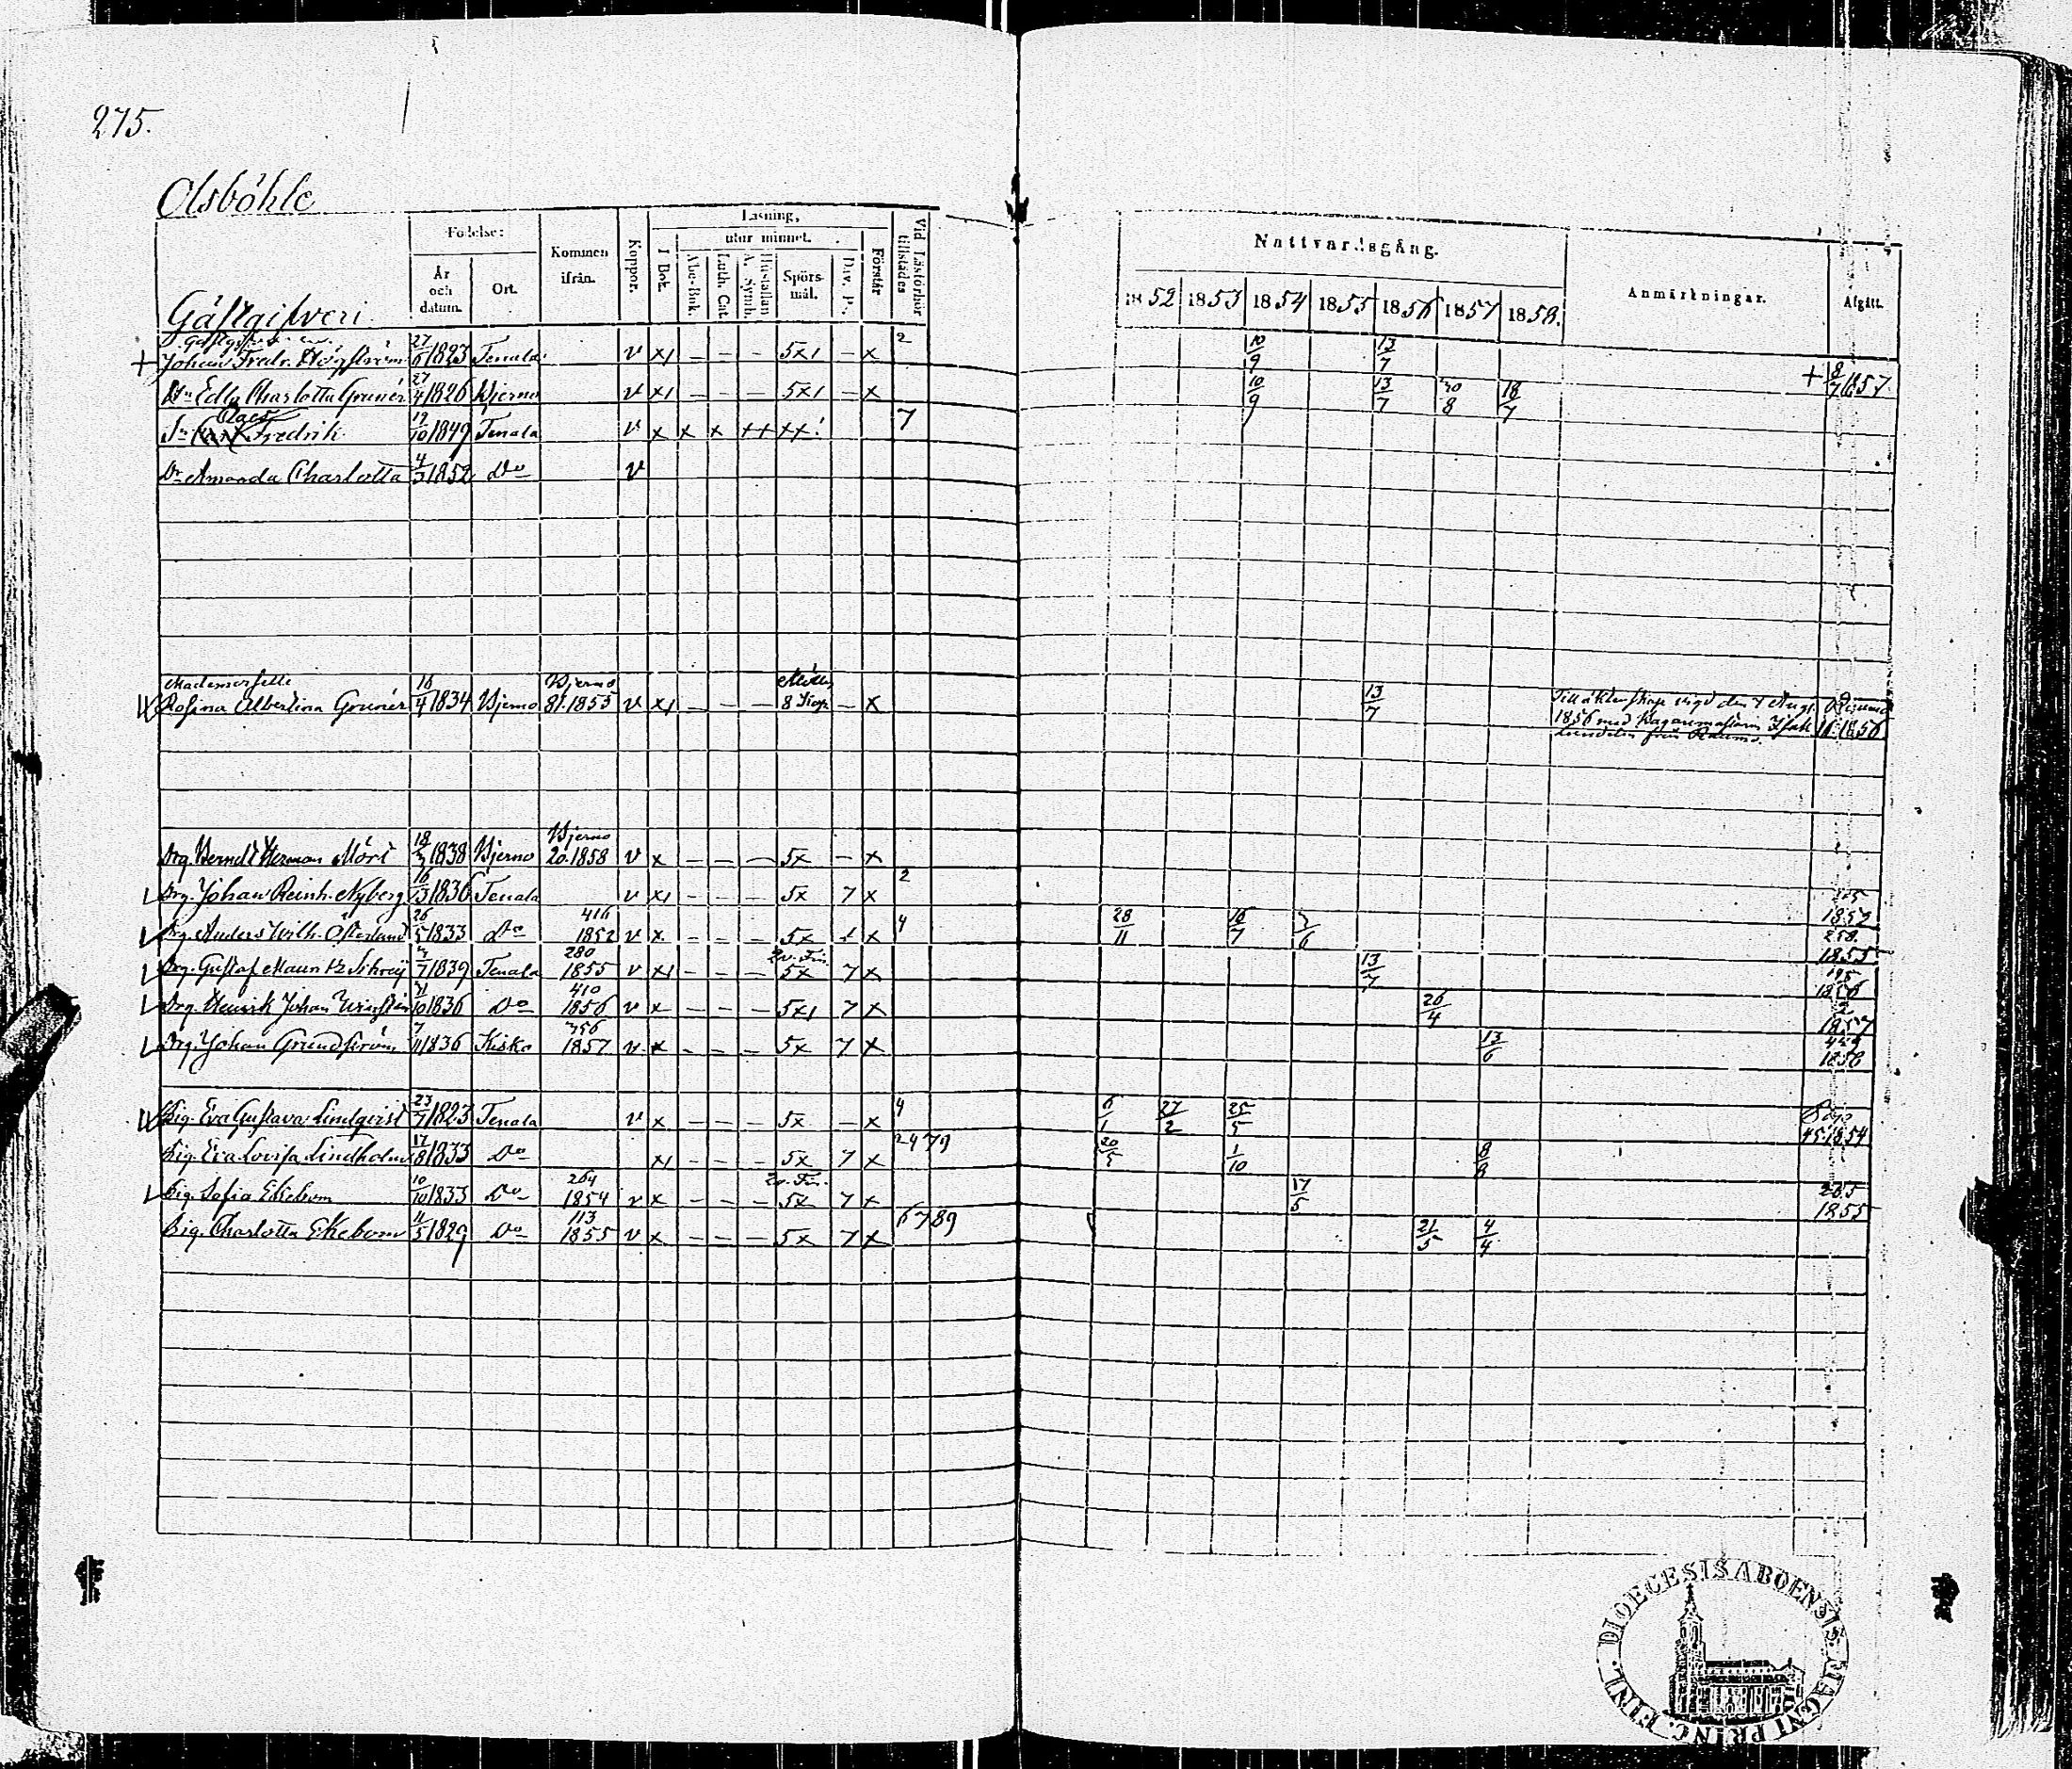 275.
Olsböhle
Gästgifveri.
Födelse:
År och datum.
Ort.
Kommen ifrån.
Koppor.
Läsning,
I Bok.
utur minnet.
Abc-Bok.
Luth. Cat.
Hustaflan A. Symb.
Spörsmål.
Dav. Ps.
Förstår
Vid Läsförhör tillstädes
Nattvardsgång.
1852 1853 1854 1855 1856 1857 1858.
Anmärkningar.
Afgått.
+ Johan Fredr. Högström 27/6 1823 Tenala v x1 – – – 5x1 – x 2 10/9 13/7 + 8/7 1857.
Edla Charlotta Grunér 27/4 1826 Bjerno v x1 – – – 5x1 – x 10/9 13/7 30/8 18/7
Sn Fredrik 19/10 1849 Tenala v x x x ++ 7
Dr Amanda Charlotta 4/3 1852 Do v
Mademoiselle Bjerno
Rosina Albertina Grunér 16/4 1834 Bjerno 81. 1855 v x1 – – – 8 – x 13/7 Till äktenskap vigd den 7 Aug.
1856 med Isak 1856
från Raumo.
Bjerno
Drg. Berndt Herman Mört 18/3 1838 Bjerno 20. 1858 v x – – – 5x – x
Drg. Johan Reinh. Nyberg 16/3 1836 Tenala v x1 – – – 5x 7 x 2 1852
Drg. Anders Wilh. Österlund 26/5 1833 Do 416 1852 v x – – – 5x x 4 28/11 16/7 3/6 258. 1855
Drg. Gustaf Maur. 7 1839 Tenala 280 1855 v x1 – – – 5x 7 x 13/7 1856
Drg. Henrik Johan 10 1836 Do 410 1856 v x – – – 5x1 7 x 26/4 1857
Drg. Johan Grundström 7/11 1836 Kisko 356 1857 v x – – – 5x 7 x 13/6 1858
Pig. Eva Gustava Lindqvist 23/7 1823 Tenala v x – – – 5x – x 4 6/1 27/2 25/5 45. 1854
Pig. Eva Lovisa Lindholm 17/8 1833 Do x1 – – – 5x 7 x 2479 20/5 1/10 8/8
Pig. Sofia Ekebom 10/10 1833 Do 264 1854 v x – – – 5x 7 x 17/5 1855
Pig. Charlotta Ekebom 11/5 1829 Do 113 1855 v x – – – 5x 7 x 6789 21/5 4/4
DIOECESIS ABOENSIS. MAGNI PRINC. FINL.